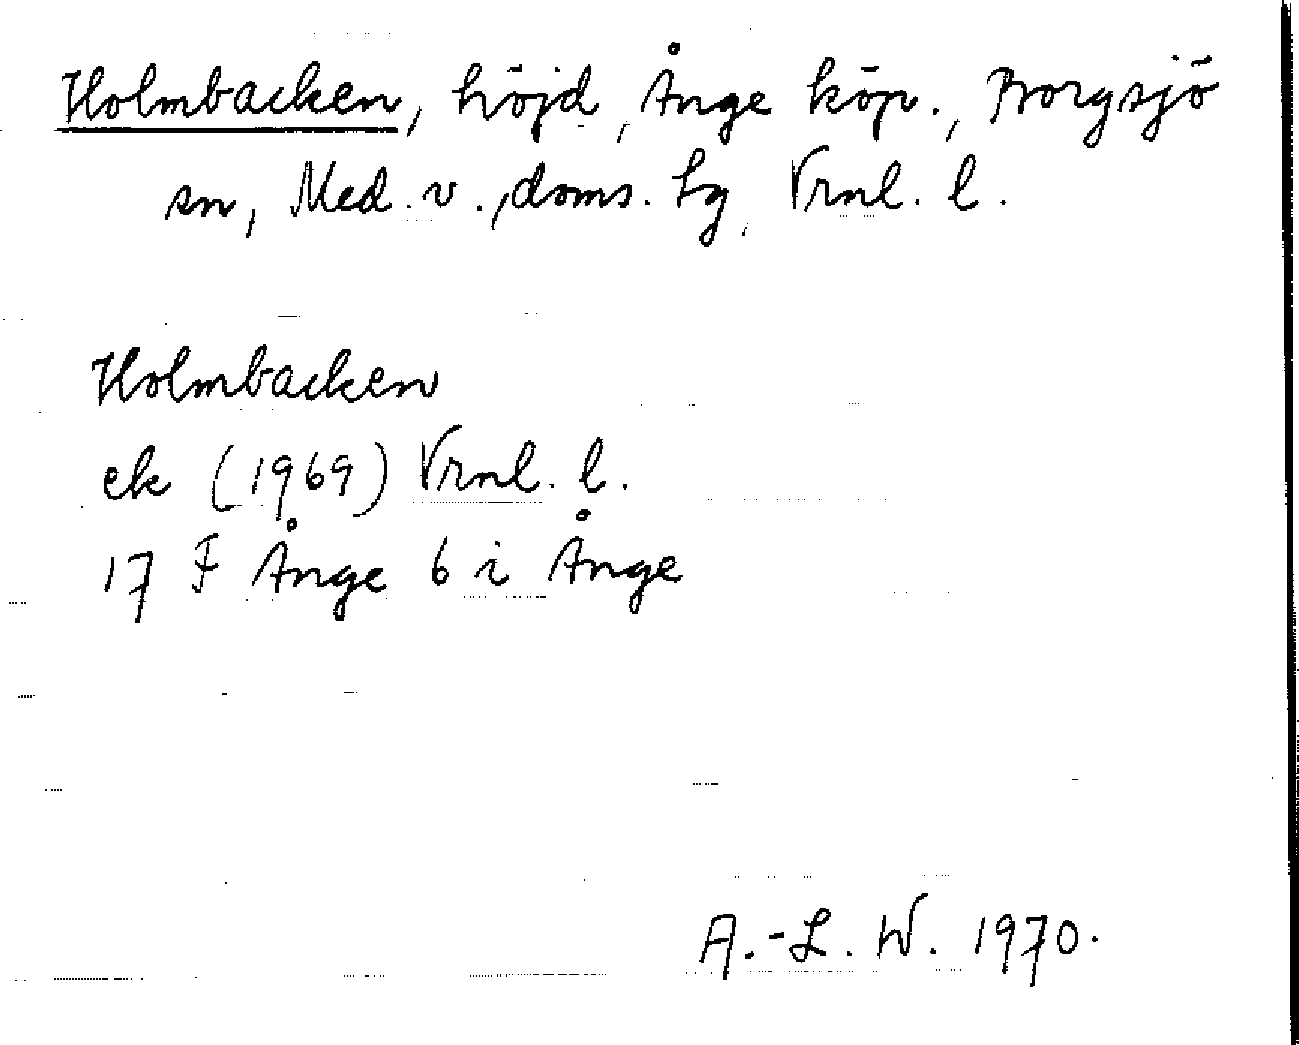 Holmbacken, höjd, Ånge köp., Borgsjö
sn, Med. v., doms. lg, Vrnl. l.
Holmbacken
ek (1969) Vrnl. l.
17 F Ånge 6 i Ånge
A.-L. W. 1970.